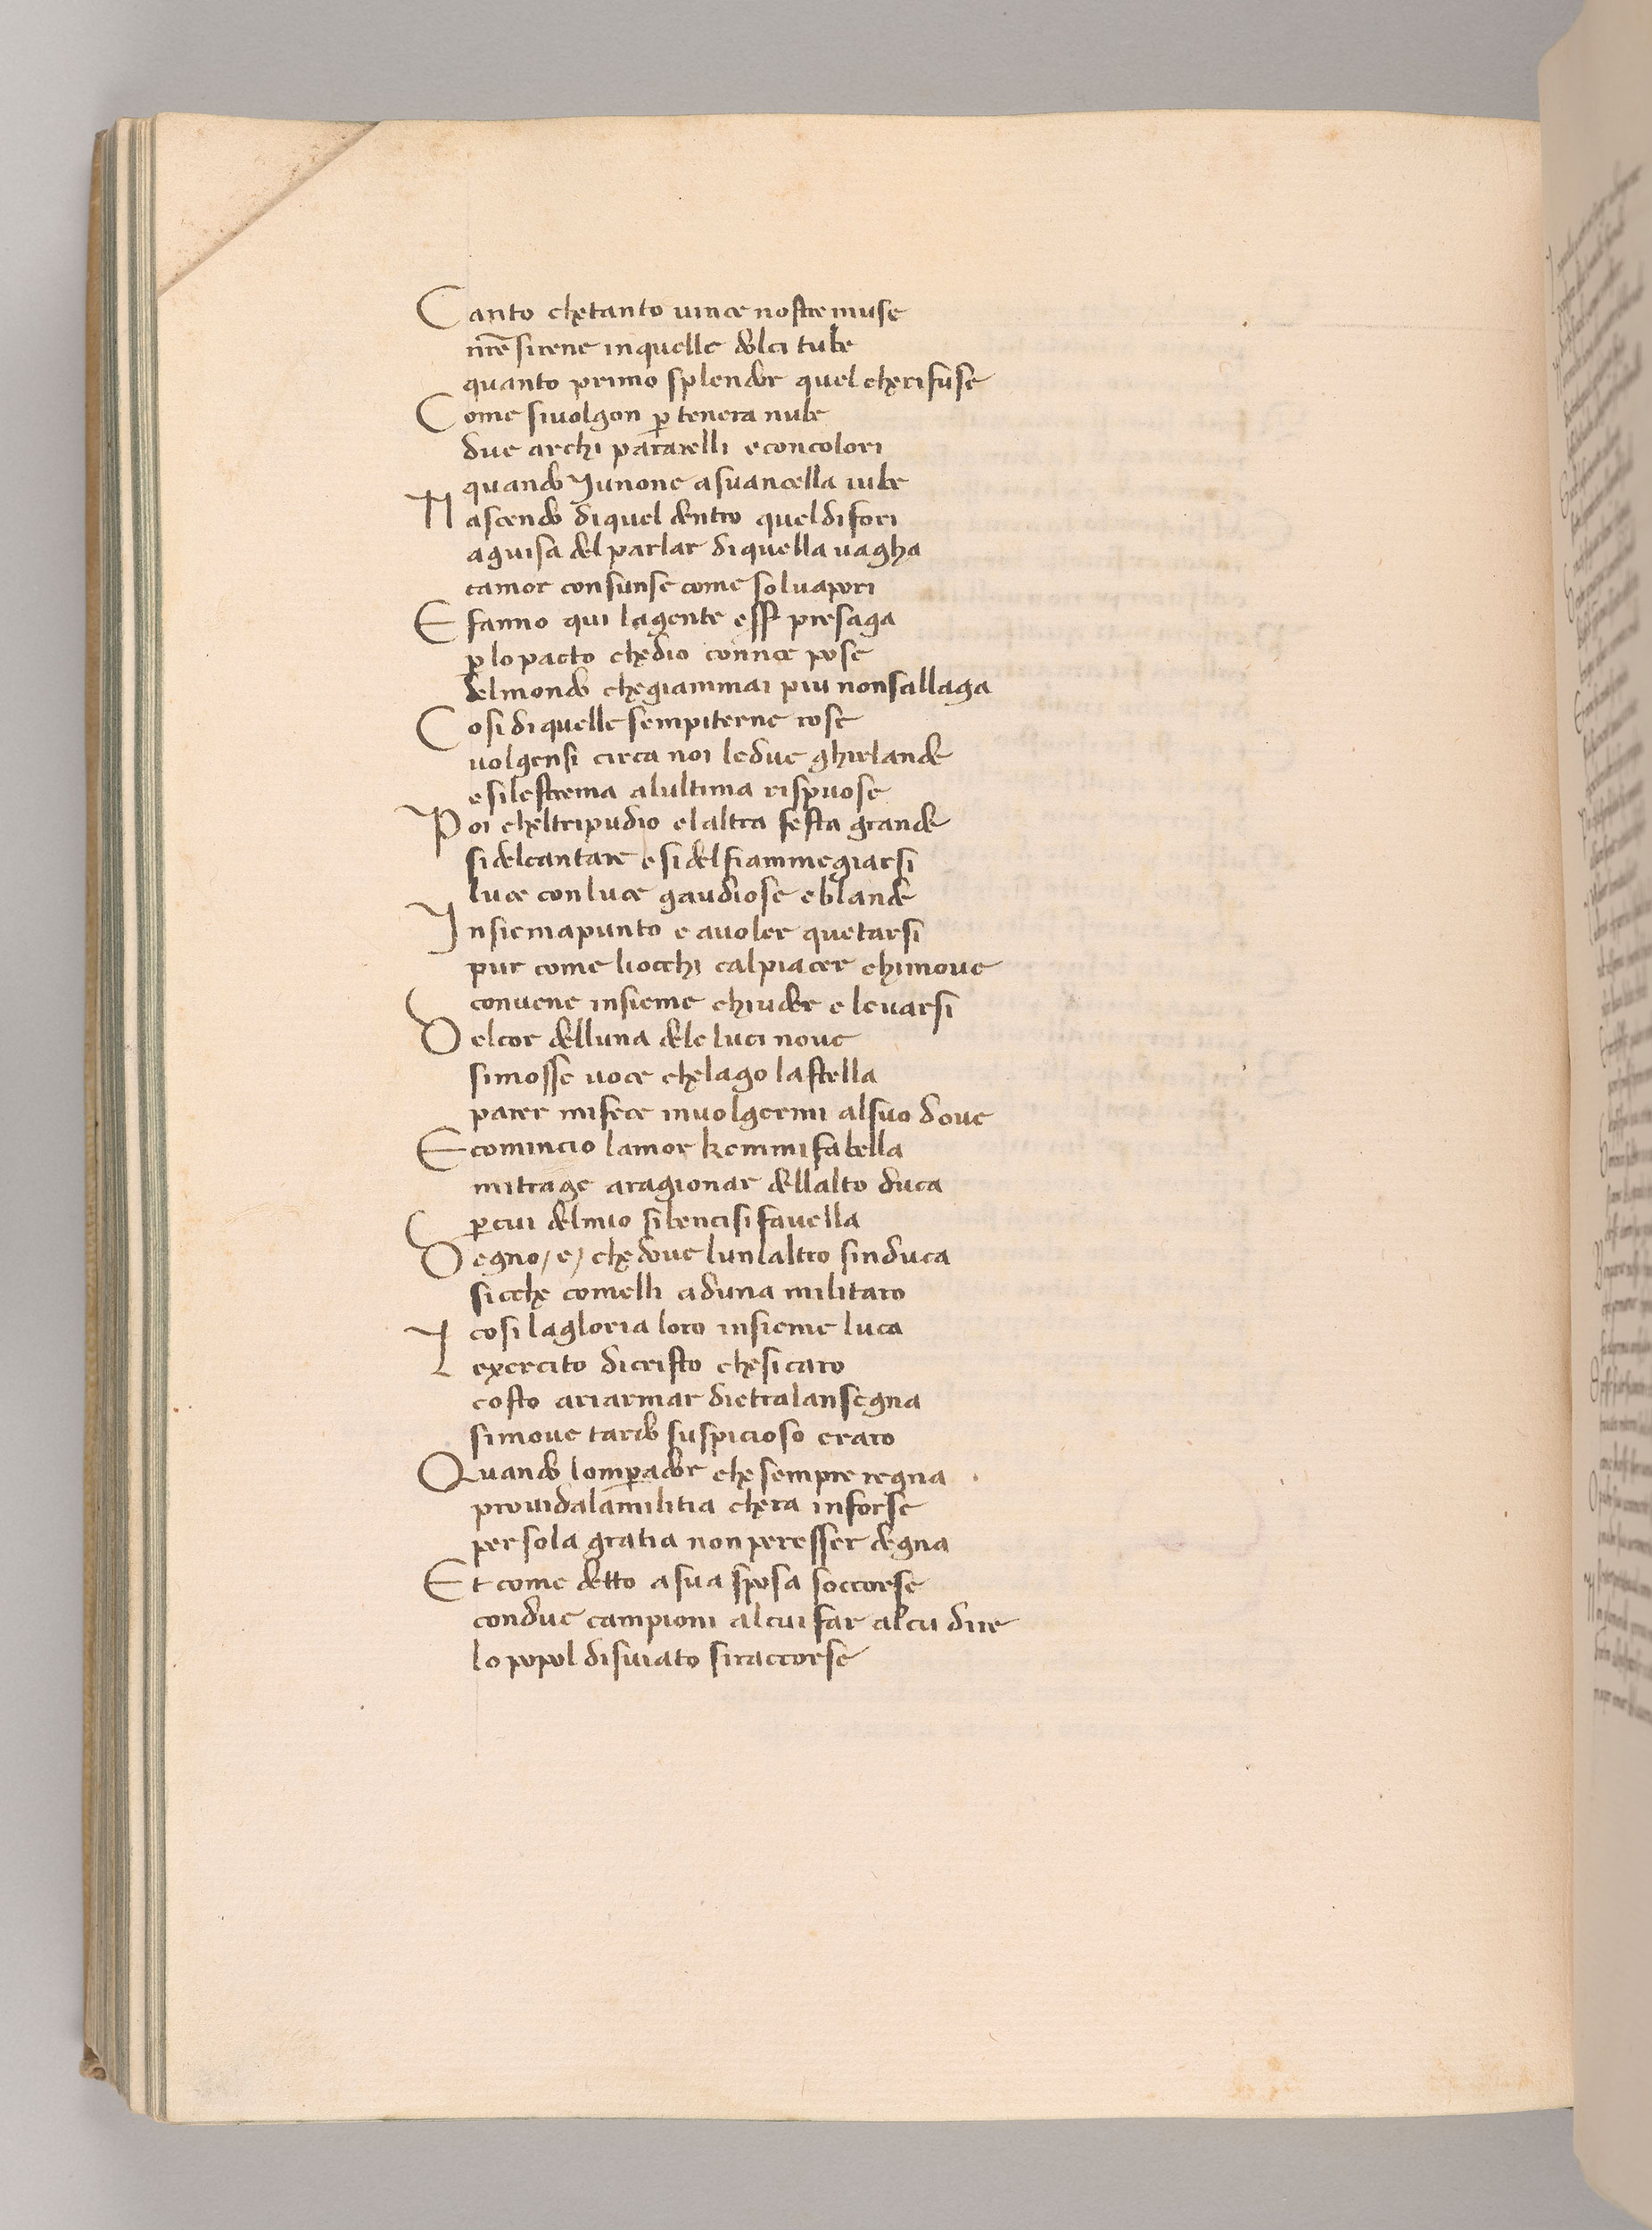 Canto che tanto vince nostre muse
nr̄e sirene in quelle dolci tube
quanto primo splendor quel che rifuse
Come si volgon ꝑ tenera nube
due archi pararelli e concolori
quando Junone a su ancella iube
Nascendo di quel dentro quel di fori
a guisa del parlar di quella vagha
camor consunse come sol vapori
E fanno qui la gente ess̄ presaga
ꝑ lo pacto che dio con noe pose
del mondo che giammai piu non sallaga
Cosi di quelle sempiterne rose
volgensi circa noi le due ghirlande
e si lestrema a lultima rispuose
Poi cheltripudio e laltra festa grande
si del cantare e si del fiammegiarsi
luce con luce gaudiose e blande
Insiem a punto e a voler quetarsi
pur come liocchi cal piacer chi move
convene insieme chiuder e levarsi
Del cor delluna dele luci nove
si mosse voce che lago la stella
parer mi fece in volgermi al suo dove
E comincio lamor kemmi fa bella
mi trage a ragionar dellalto duca
ꝑ cui del mio si benci si favella
Degno/ e/ che dove lun laltro sinduca
sicche comelli ad una militaro
cosi la gloria loro insieme luca
Lexercito di cristo che si caro
costo a riarmar dietra lansegna
si move tardo suspicioso e raro
Quando lomꝑador che sempre regna
provide a la militia chera in forse
per sola gratia non per esser degna
Et come detto a sua sposa soccorse
con due campioni al cui far al cui dire
lo popol disviato si raccorse